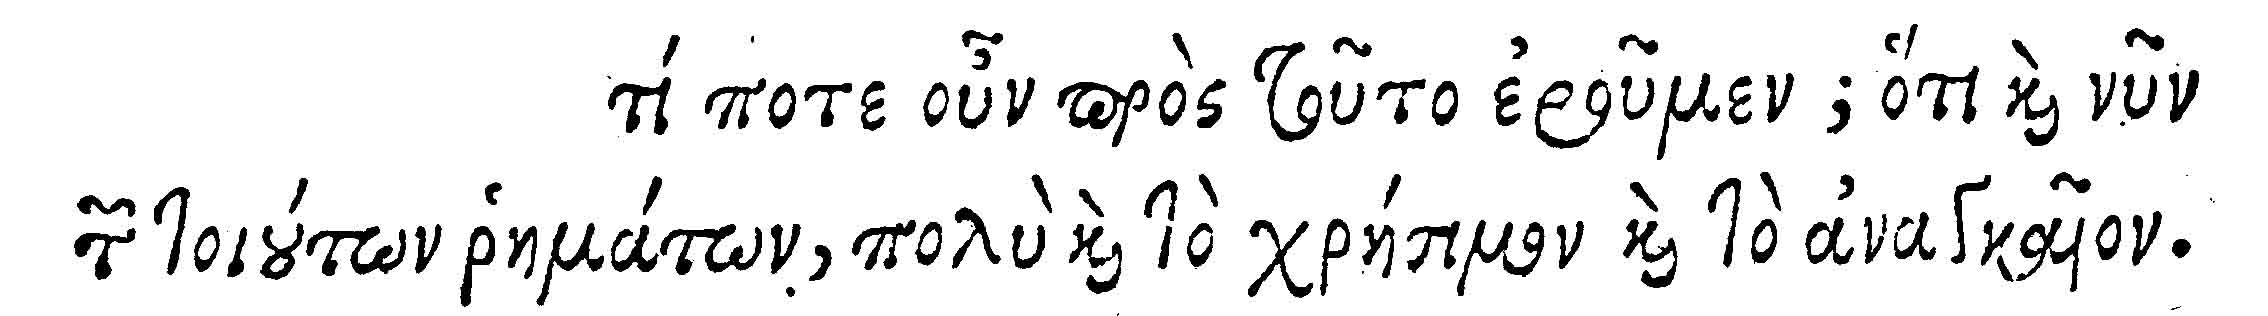 τί ποτε οὖν πρὸς τοῦτο ἐροῦμεν; ὅτι καὶ νῦν
τῶν τοιούτων ῥημάτων, πολὺ καὶ τὸ χρήσιμον καὶ τὸ ἀναγκαῖον.